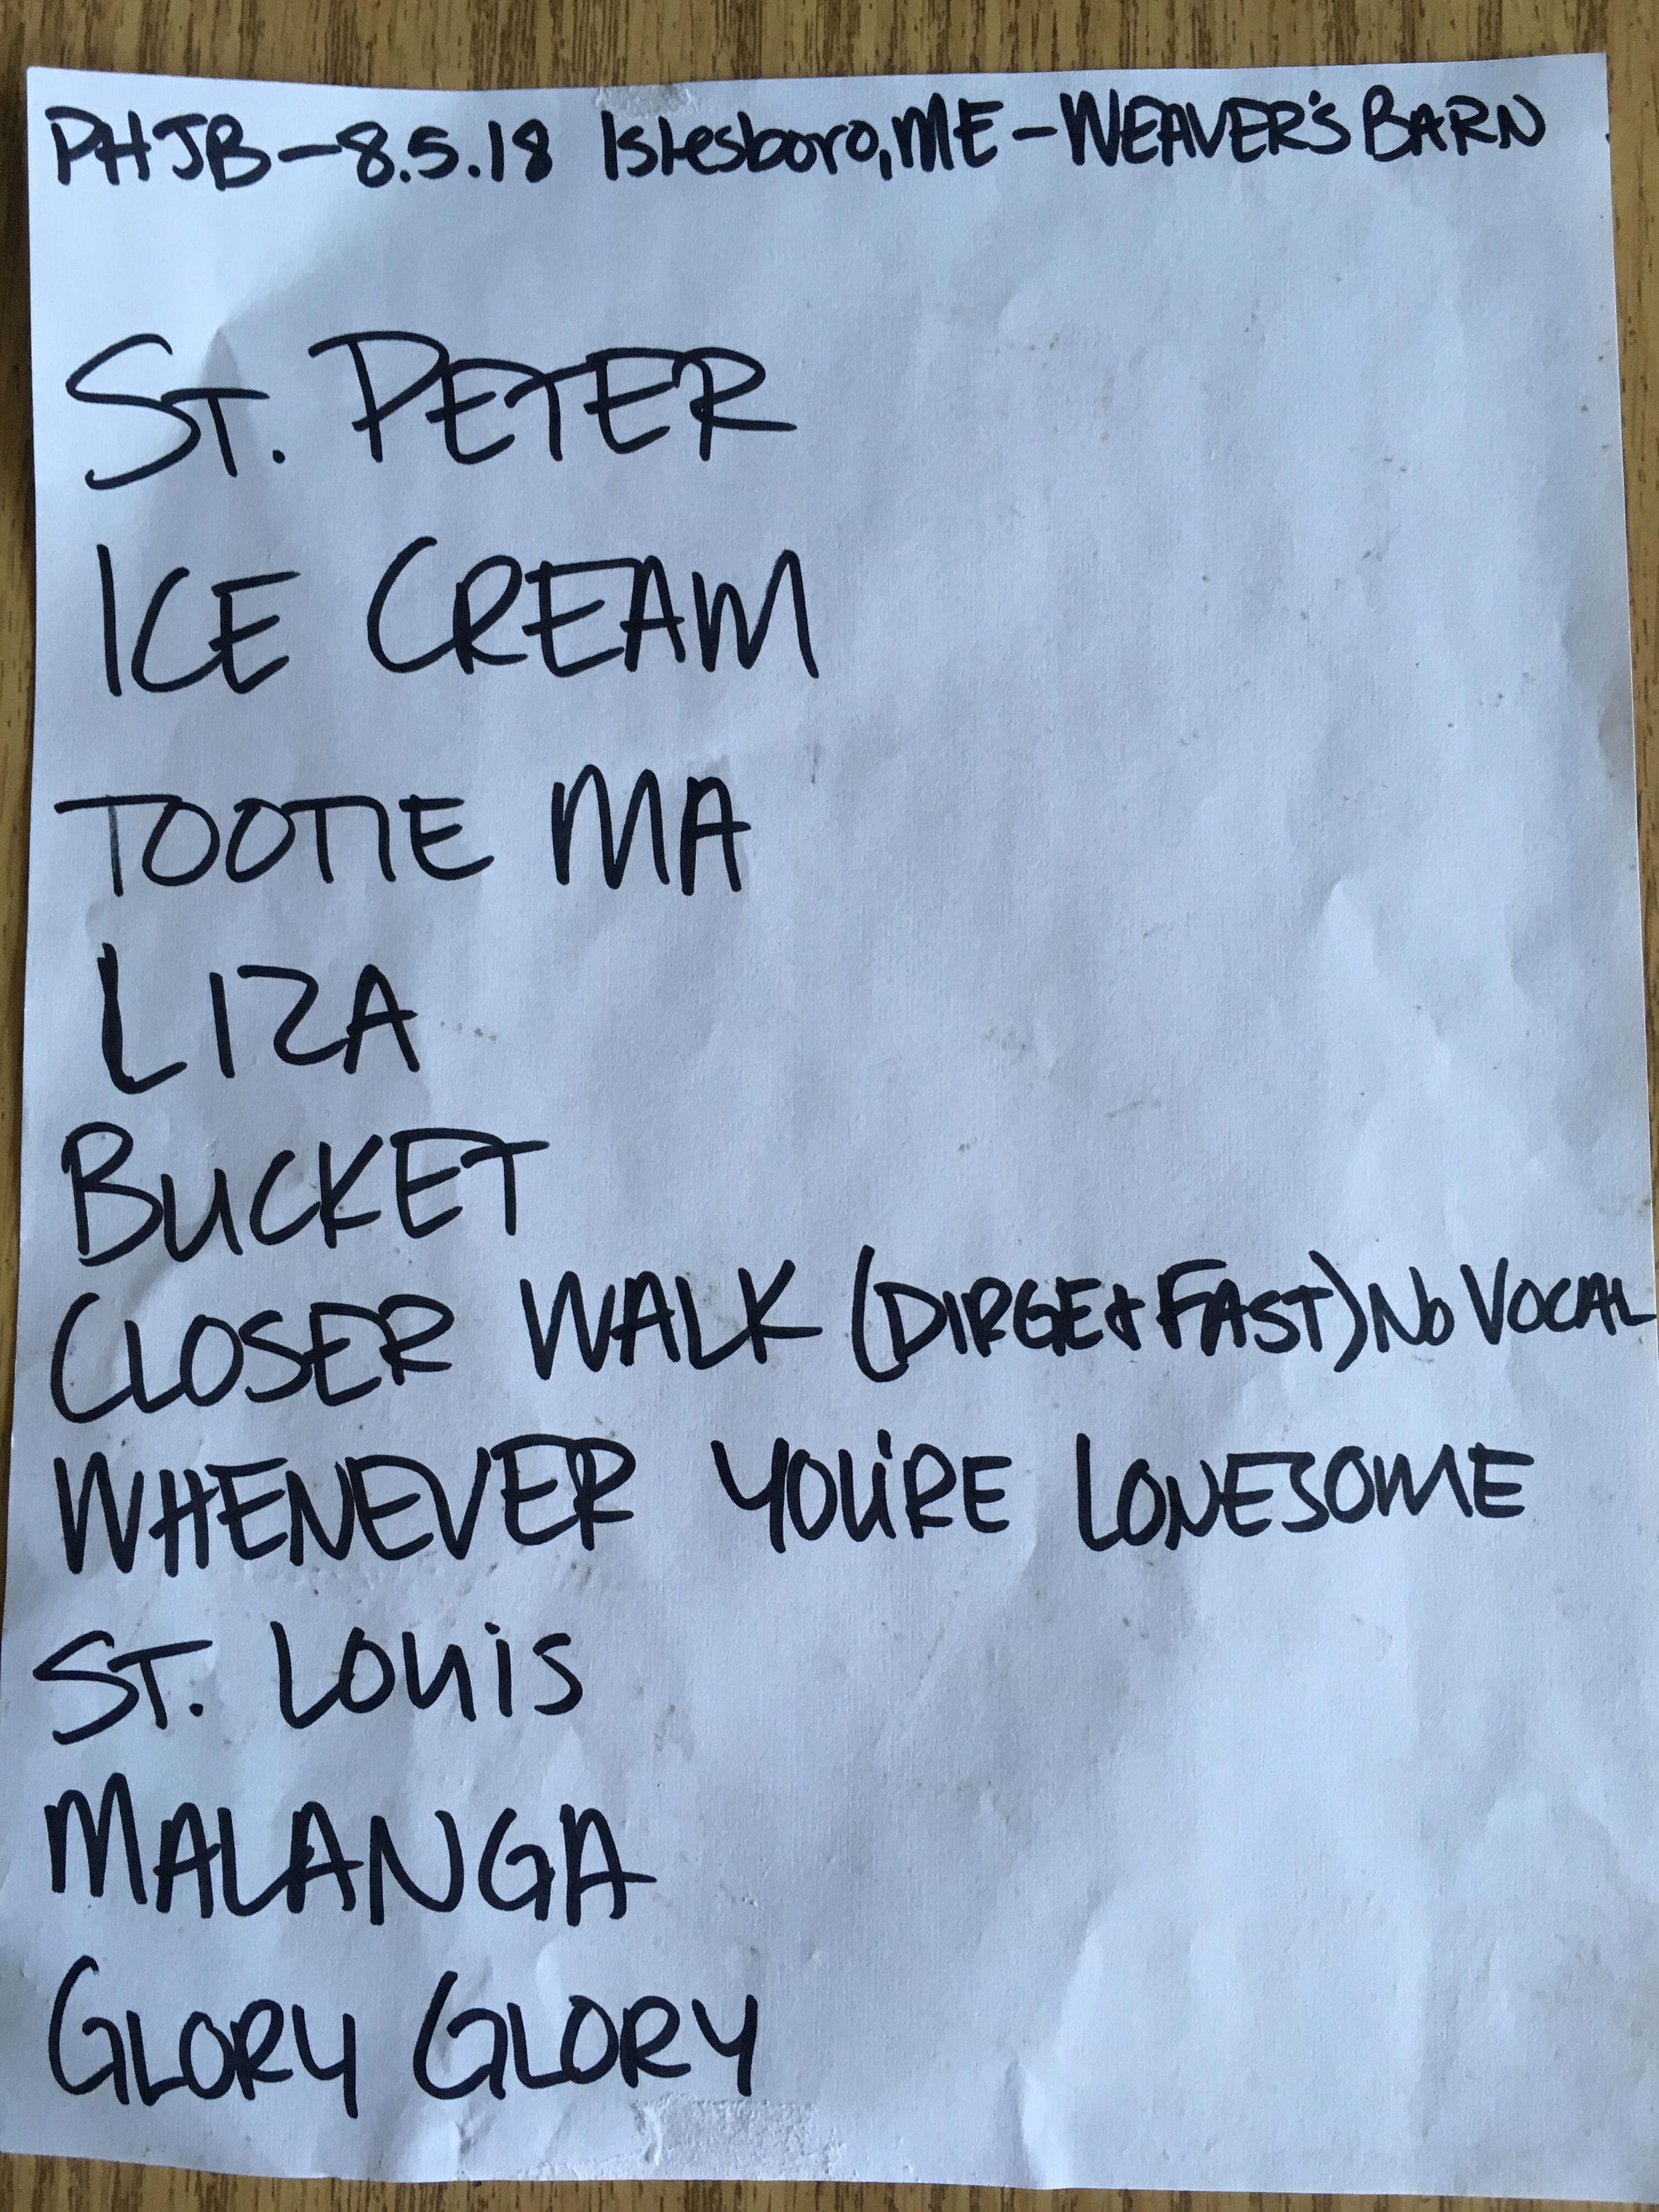 PHJB-8.5.18 Islesboro, ME - WEAVER'S BARN
ST. PETER
ICE CREAM
TOOTIE MA
LIZA
BUCKET
CLOSER WALK (DIRGE & FAST) NO VOCAL
WHENEVER YOU'RE LONESOME
ST. LOUIS
MALANGA
GLORY GLORY